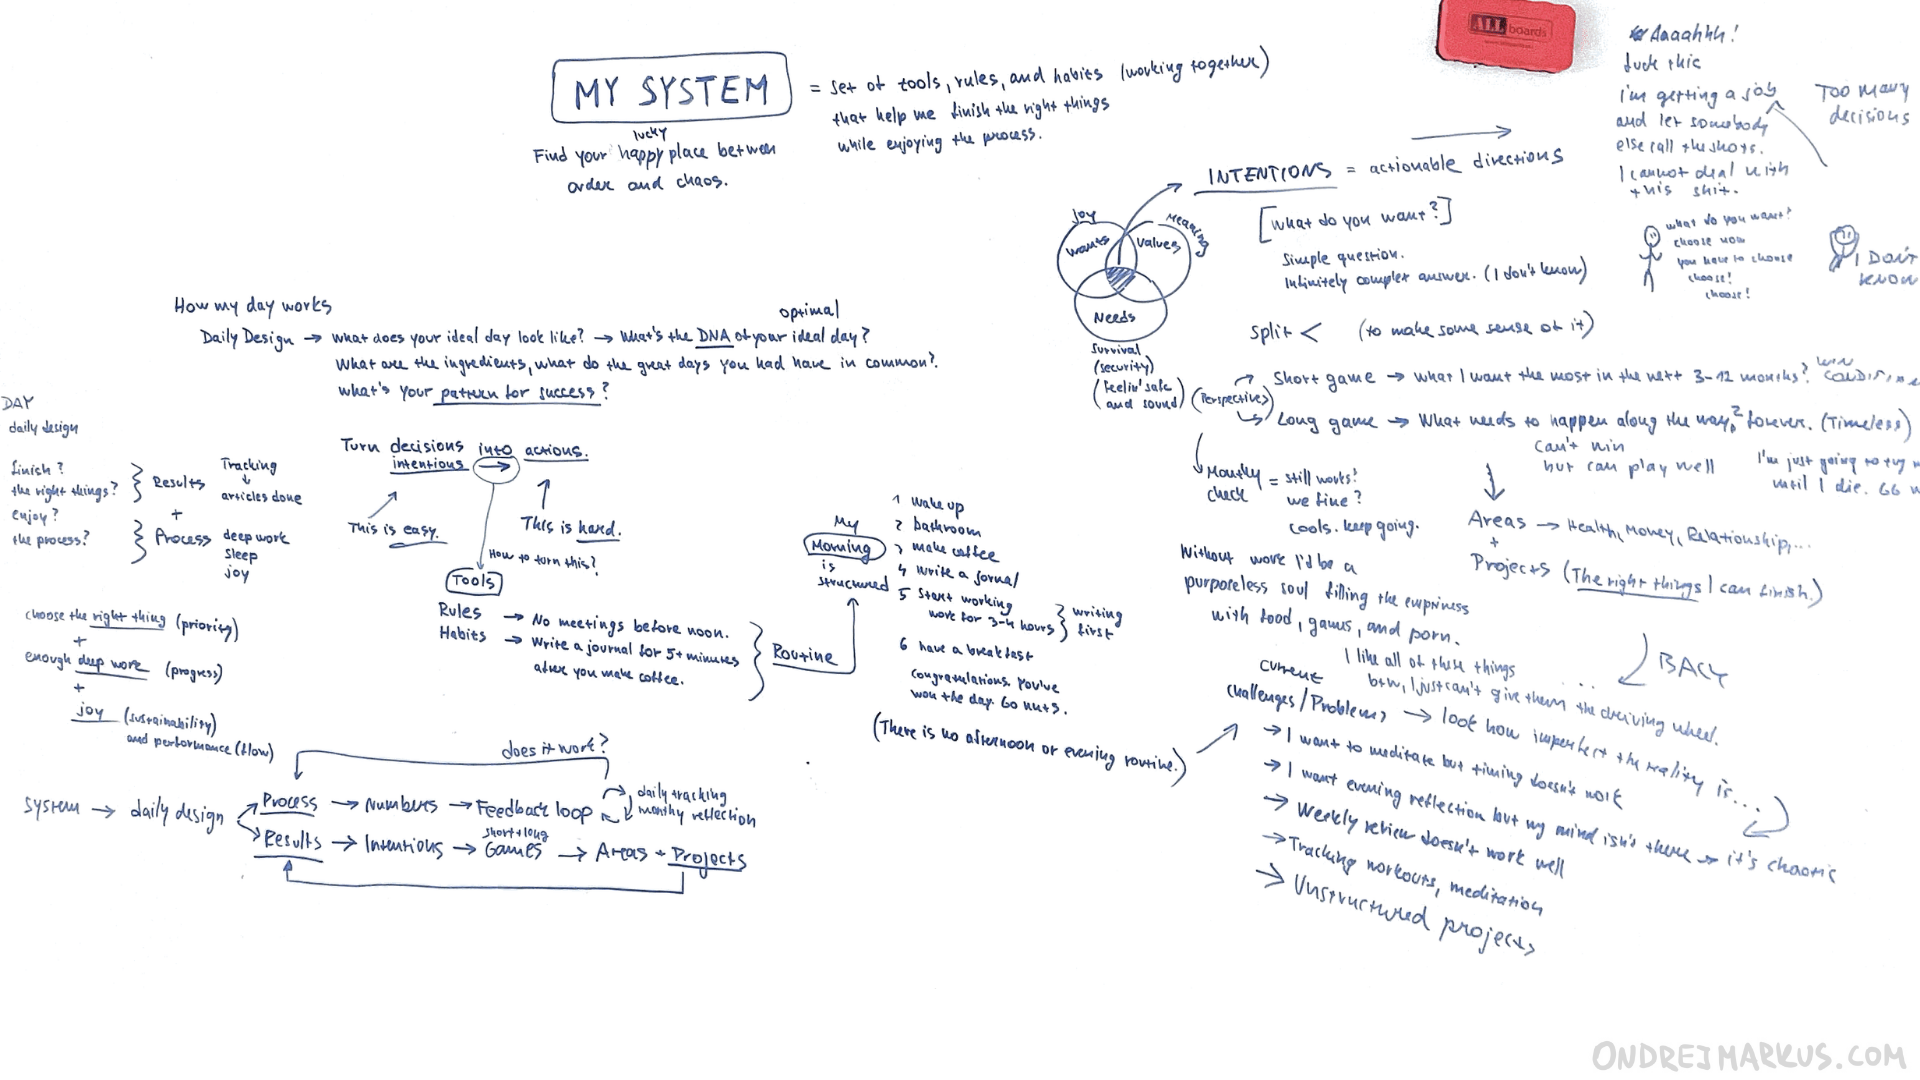 MY SYSTEM
= set of tools, rules, and habits (working together)
that help me finish the right things
while enjoying the process.
lucky
Find your happy place between
order and chaos.
ALL boards
Aaaahhh!
fuck this
I'm getting a job
and let somebody
else call the shots.
I cannot deal with
this shit.
TOO MANY
decisions
what do you want?
choose now
you have to choose
choose!
choose!
I DON'T
KNOW
INTENTIONS = actionable directions
[what do you want?]
Simple question.
Infinitely complex answer. (I don't know)
Joy
Meaning
Wants
Values
Needs
Survival
(security)
(Feelin' safe
and sound)
split < (to make some sense of it)
(Perspective)
Short game → what I want the most in the next 3-12 months?
WIN
Long game → What needs to happen along the way, forever. (Timeless)
?
can't win
but can play well
I'm just going to try
until I die. GG
Monthly
check
= still works?
we fine?
cools. keep going.
Areas → Health, Money, Relationship,...
+
Projects (The right things I can finish.)
Without work I'd be a
purposeless soul filling the emptiness
with food, games, and porn.
I like all of these things
btw, I just can't give them the driving wheel.
...
BACK
current
challenges/Problems → look how imperfect the reality is...
→ I want to meditate but timing doesn't work
→ I want evening reflection but my mind isn't there → it's chaotic
→ Weekly review doesn't work well
→ Tracking workouts, meditation
→ Unstructured projects
How my day works
optimal
Daily Design → what does your ideal day look like? → What's the DNA of your ideal day?
What are the ingredients, what do the great days you had have in common?
what's your pattern for success?
DAY
daily design
finish?
the right things?
enjoy?
the process?
Results
+
Process
Tracking
↓
articles done
deep work
sleep
joy
Turn decisions into actions.
intentions →
This is easy.
This is hard.
How to turn this?
Tools
Rules → No meetings before noon.
Habits → Write a journal for 5+ minutes
after you make coffee.
Routine
My
Morning
is
structured
1 wake up
2 bathroom
3 make coffee
4 write a jornal
5 start working
work for 3-4 hours
writing
first
6 have a breakfast
congratulations. You've
won the day. Go nuts.
(There is no afternoon or evening routine.)
choose the right thing (priority)
+
enough deep work (progress)
+
joy (sustainability)
and performance (flow)
does it work?
System → daily design
Process → Numbers → Feedback loop
daily tracking
monthy reflection
short + long
Results → Intentions → Games → Areas + Projects
ONDREJMARKUS.COM